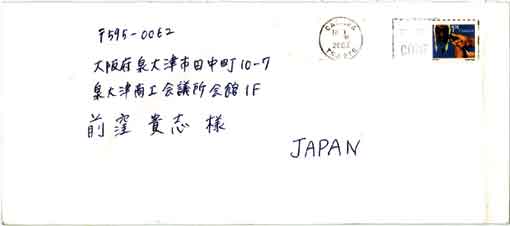 〒595-0062
大阪府泉大津市田中町10-7
泉大津商工会議所会館1F
前窪 貴志 様
JAPAN
CANADA
2002